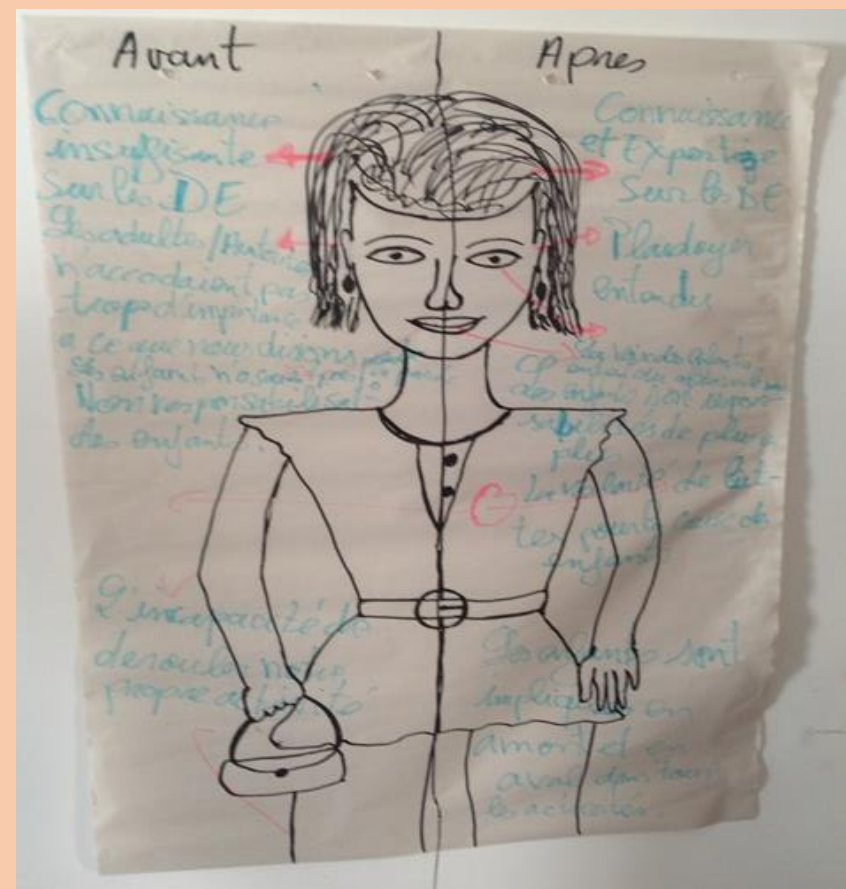 Avant
Connaissance
insuffisante
sur les DE
Les adultes/
n'accordaient pas
trop d'importance
a ce que nous disons
Non responsabilisat-
des enfants.
L'incapacité de
derouler notre
propre activité
Apres
Connaissance
et Expertise
sur les DE
Plaidoyer
entendu
sabilisés de plus en
plus
La volonté de lut-
ter pour la cause des
enfants
Les enfants sont
impliqués en
amont et en
aval dans tous
les activités.